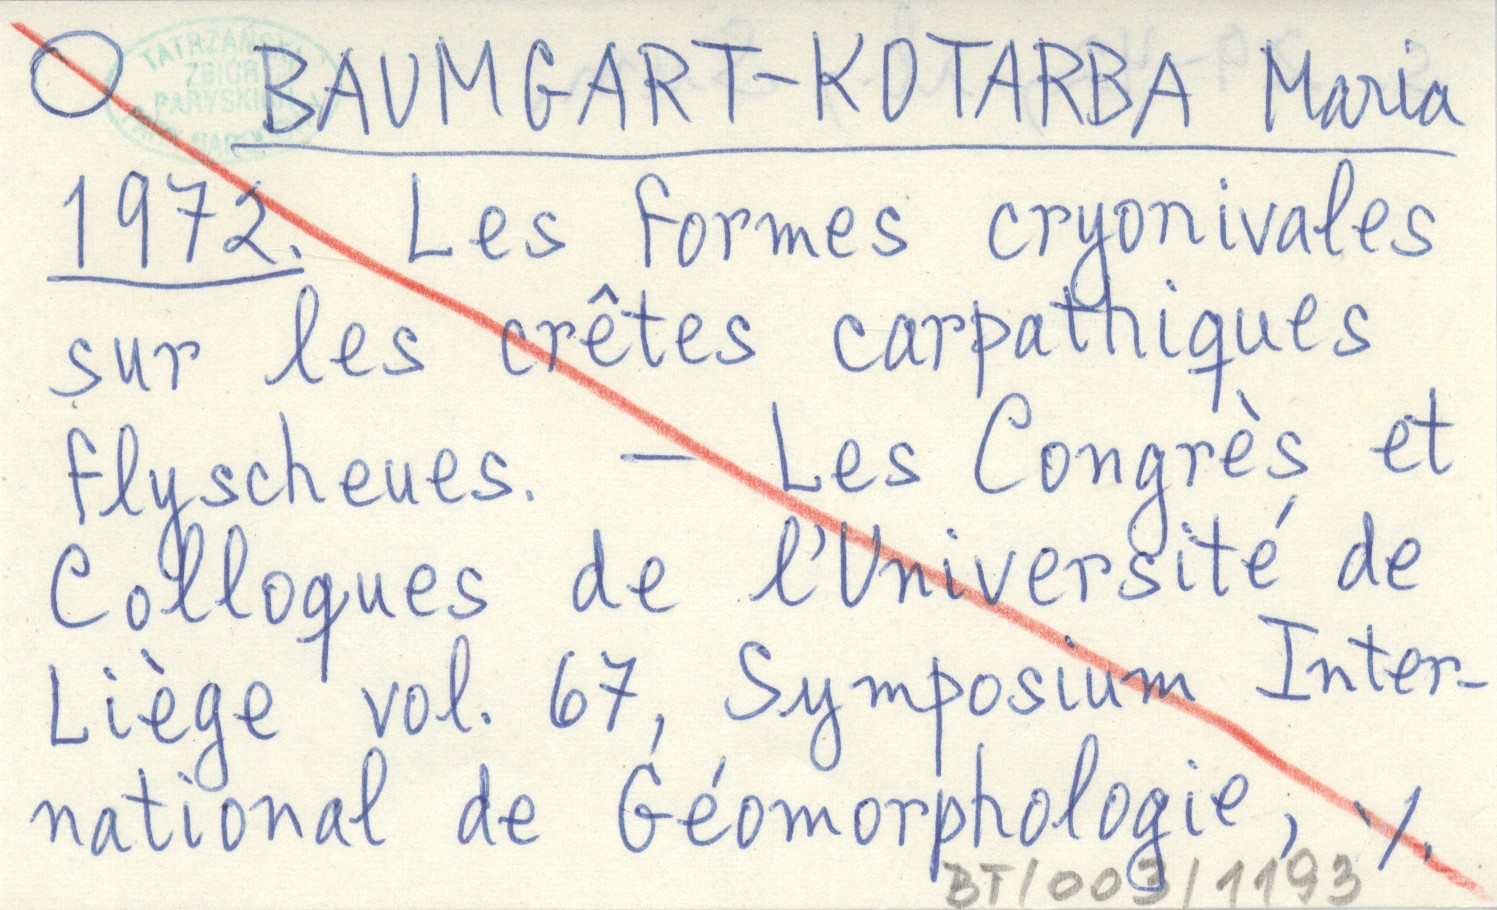 TATRZAŃSKI
ZBIÓR
PARYSKICH
BAUMGART-KOTARBA Maria
1972. Les formes cryonivales
sur les crêtes carpathiques
flyscheues. — Les Congrès et
Colloques de l'Université de
Liège vol. 67, Symposium Inter-
national de Géomorphologie, ./.
BT/003/1193